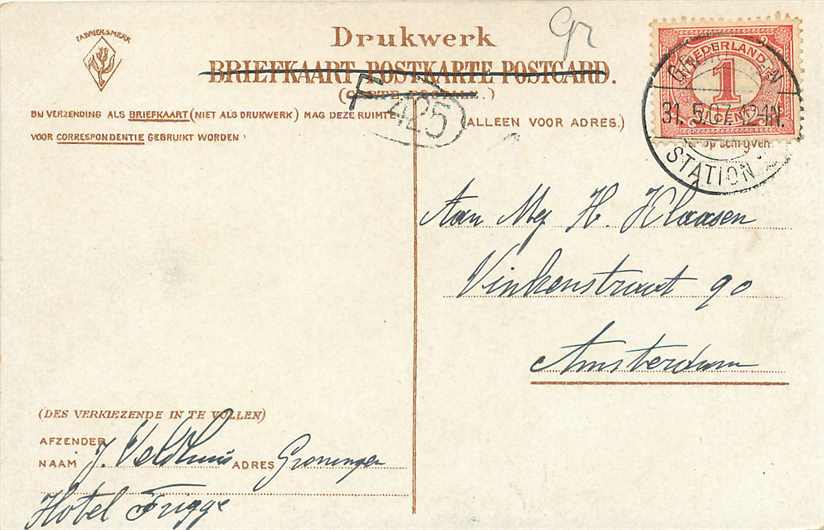 FABRIEKSMERK
Gr
Drukwerk
BRIEFKAART POSTKARTE POSTCARD.
F 425
BIJ VERZENDING ALS BRIEFKAART (NIET ALS DRUKWERK) MAG DEZE RUIMTE
(ALLEEN VOOR ADRES.)
VOOR CORRESPONDENTIE GEBRUIKT WORDEN
NEDERLAND
1
CENT
31. 5.07. 12-1N.
STATION
Aan Mej H. Klaasen
Vinkenstraat 90
Amsterdam
(DES VERKIEZENDE IN TE VULLEN)
AFZENDER
NAAM J. Veldhuis ADRES Groningen
Hotel Frigge